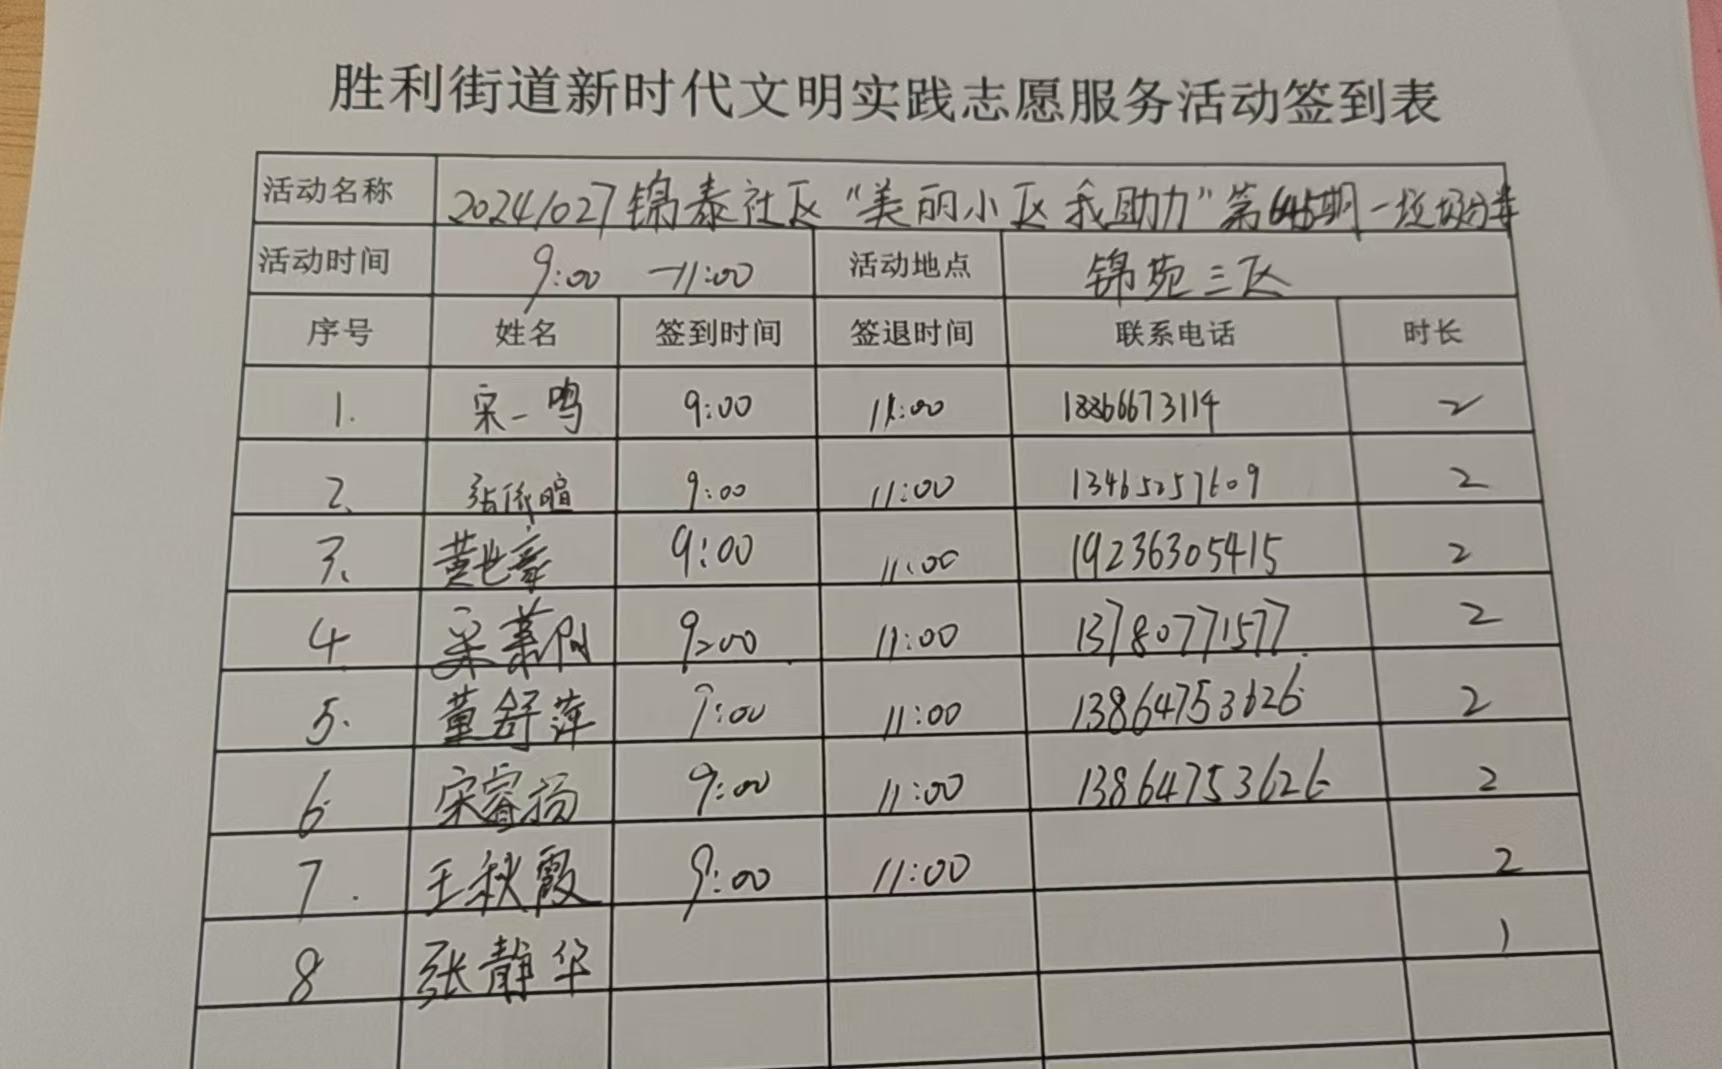 胜利街道新时代文明实践志愿服务活动签到表
活动名称 20241027锦泰社区“美丽小区 我助力”第645期-垃圾分类
活动时间 9:00 —11:00 活动地点 锦苑三区
序号 姓名 签到时间 签退时间 联系电话 时长
1. 宋一鸣 9:00 11:00 18866673114 2
2、 9:00 11:00 13465257609 2
3、 9:00 11:00 19236305415 2
4 9:00 11:00 13780771577 2
5. 董舒萍 9:00 11:00 13864753626 2
6 宋睿扬 9:00 11:00 13864753626 2
7. 王秋霞 9:00 11:00 2
8 张静华 1